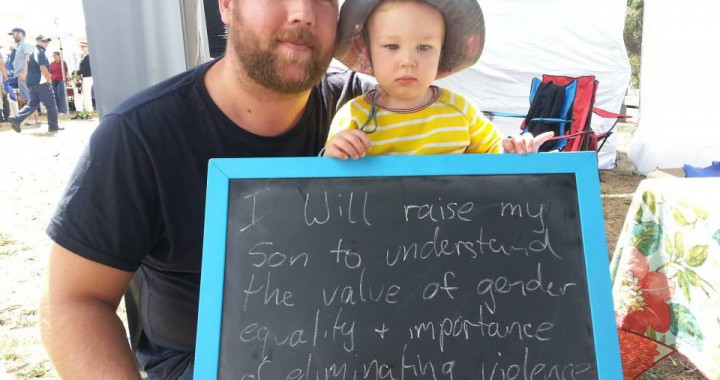 I Will raise my
Son to understand
the value of gender
equality + importance
of eliminating violence